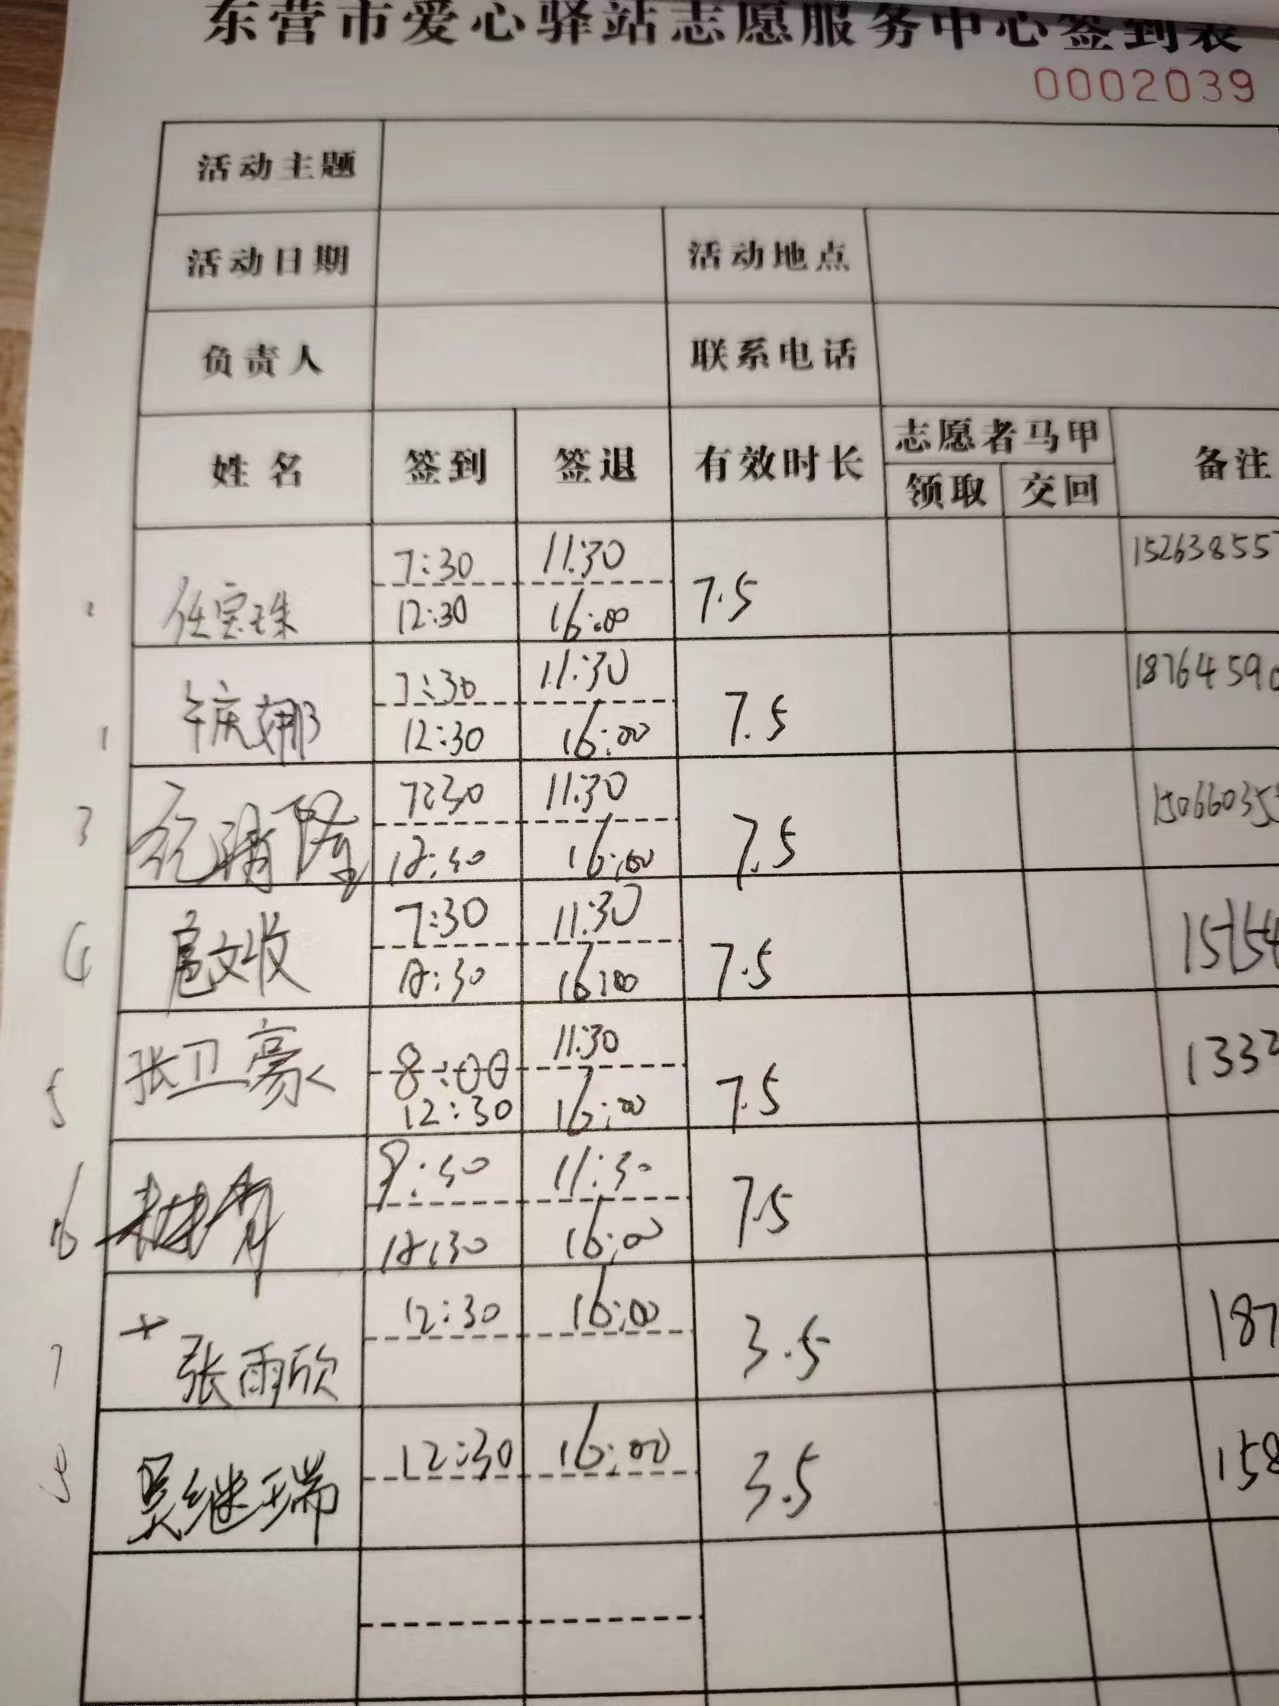 东营市爱心驿站志愿服务中心签到表
0002039
活动主题
活动日期 活动地点
负责人 联系电话
姓名 签到 签退 有效时长 志愿者马甲 备注
领取 交回
任宝珠 7:30 11:30 7.5 15263855
12:30 16:00
7:30 11:30 7.5 18764590
1 12:30 16:00
3 7:30 11:30 7.5 15066035
12:30 16:00
4 扈文收 7:30 11:30 7.5 15154
12:30 16:00
5 张卫豪 8:00 11:30 7.5 133
12:30 16:00
6 11:30 7.5
12:30 16:00
7 张雨欣 12:30 16:00 3.5 187
8 吴继瑞 12:30 16:00 3.5 158